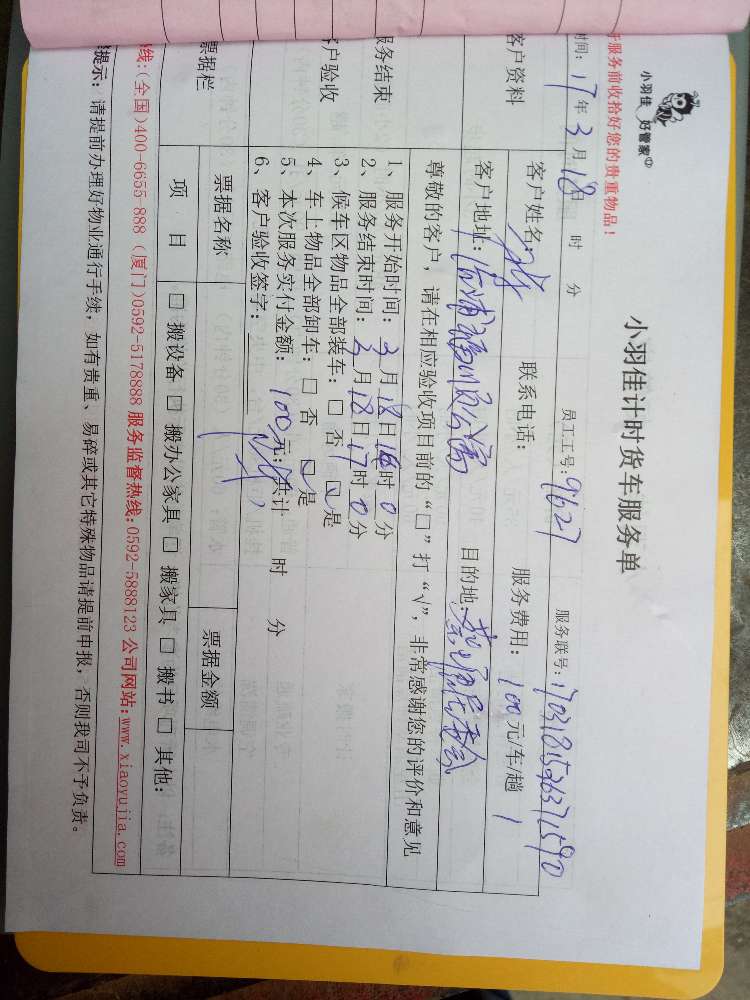 小羽佳 好管家
服务前收拾好您的贵重物品！
小羽佳计时货车服务单
时间：17年3月18日 时 分 员工工号：9627 服务联号：
客户资料
客户姓名： 联系电话： 服务费用：100元/车/趟 1
客户地址： 目的地：
尊敬的客户，请在相应验收项目前的“□”打“√”，非常感谢您的评价和意见
服务结束
客户验收
1、服务开始时间：3月18日16时0分
2、服务结束时间：3月18日17时0分
3、候车区物品全部装车：□ 否 ☑是
4、车上物品全部卸车：□ 否 ☑是
5、本次服务实付金额：100元；共计 时 分
6、客户验收签字：
票据栏
票据名称 票据金额
项 目 □ 搬设备 □ 搬办公家具 □ 搬家具 □ 搬书 □ 其他：
线：(全国)400-6655-888 (厦门)0592-5178888 服务监督热线：0592-5888123 公司网站：www.xiaoyujia.com
提示：请提前办理好物业通行手续，如有贵重、易碎或其它特殊物品请提前申报，否则我司不予负责。